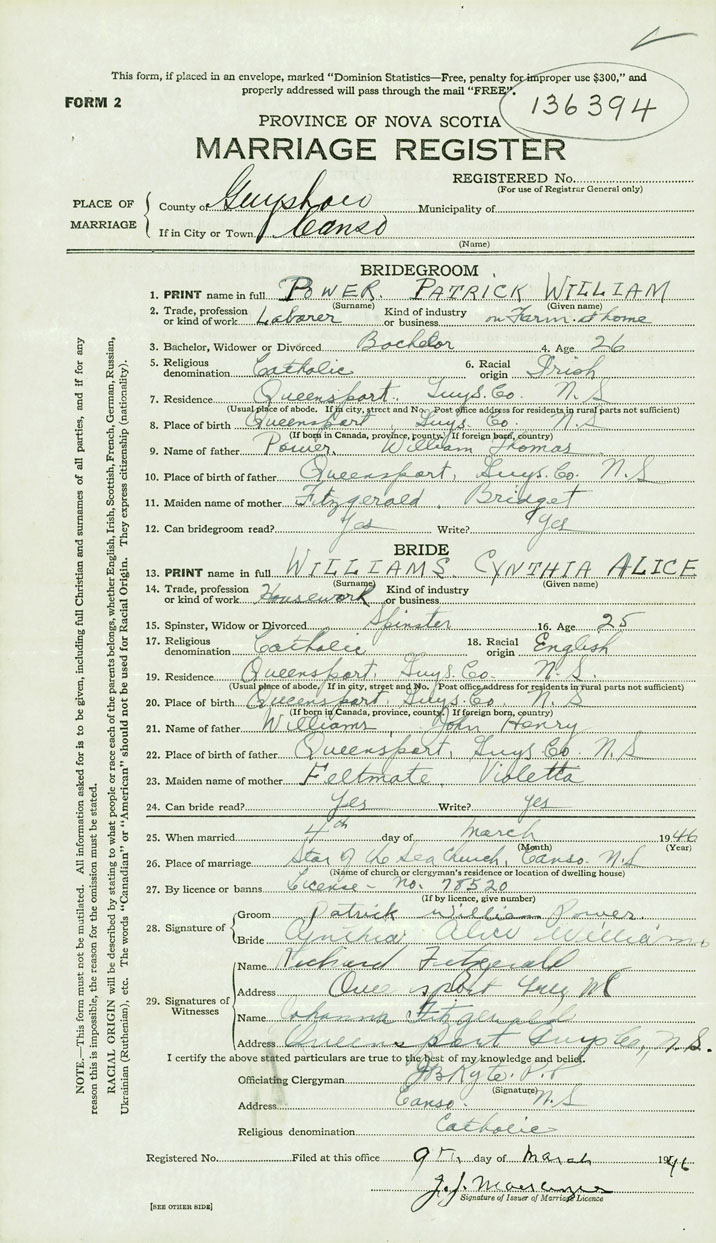 This form, if placed in an envelope, marked "Dominion Statistics—Free, penalty for improper use $300," and
properly addressed will pass through the mail "FREE".
FORM 2
136394
PROVINCE OF NOVA SCOTIA
MARRIAGE REGISTER
REGISTERED No.
(For use of Registrar General only)
PLACE OF MARRIAGE
County of Guysboro Municipality of
If in City or Town Canso
(Name)
BRIDEGROOM
1. PRINT name in full POWER. PATRICK WILLIAM
(Surname) (Given name)
2. Trade, profession or kind of work Laborer Kind of industry or business on Farm at home
3. Bachelor, Widower or Divorced Bachelor 4. Age 26
5. Religious denomination Catholic 6. Racial origin Irish
7. Residence Queensport, Guys. Co. N.S
(Usual place of abode. If in city, street and No. Post office address for residents in rural parts not sufficient)
8. Place of birth Queensport, Guys. Co. N.S
(If born in Canada, province, county. If foreign born, country)
9. Name of father Power, William Thomas
10. Place of birth of father Queensport, Guys. Co. N.S
11. Maiden name of mother Fitzgerald, Bridget
12. Can bridegroom read? Yes Write? Yes
BRIDE
13. PRINT name in full WILLIAMS. CYNTHIA ALICE
(Surname) (Given name)
14. Trade, profession or kind of work Housework Kind of industry or business
15. Spinster, Widow or Divorced Spinster 16. Age 25
17. Religious denomination Catholic 18. Racial origin English
19. Residence Queensport, Guys. Co. N.S.
(Usual place of abode. If in city, street and No. Post office address for residents in rural parts not sufficient)
20. Place of birth Queensport, Guys Co. N.S
(If born in Canada, province, county. If foreign born, country)
21. Name of father Williams, John Henry
22. Place of birth of father Queensport, Guys Co. N.S
23. Maiden name of mother Feltmate, Violetta
24. Can bride read? Yes Write? Yes
25. When married 4th day of March 1946
(Month) (Year)
26. Place of marriage Star of the Sea Church, Canso. N.S
(Name of church or clergyman's residence or location of dwelling house)
27. By licence or banns License - No. 78520
(If by licence, give number)
28. Signature of
Groom Patrick William Power.
Bride Cynthia Alice Williams.
29. Signatures of Witnesses
Name Richard Fitzgerald
Address Queensport Guy
Name Johanna Fitzgerald
Address Queensport Guys Co, N.S.
I certify the above stated particulars are true to the best of my knowledge and belief.
Officiating Clergyman JB Kyte. P.P.
(Signature)
Address Canso. N.S
Religious denomination Catholic
Registered No. Filed at this office 9th day of March 1946
J.J.
Signature of Issuer of Marriage Licence
[SEE OTHER SIDE]
NOTE.—This form must not be mutilated. All information asked for is to be given, including full Christian and surnames of all parties, and if for any
reason this is impossible, the reason for the omission must be stated.
RACIAL ORIGIN will be described by stating to what people or race each of the parents belongs, whether English, Irish, Scottish, French, German, Russian,
Ukrainian (Ruthenian), etc. The words "Canadian" or "American" should not be used for Racial Origin. They express citizenship (nationality).